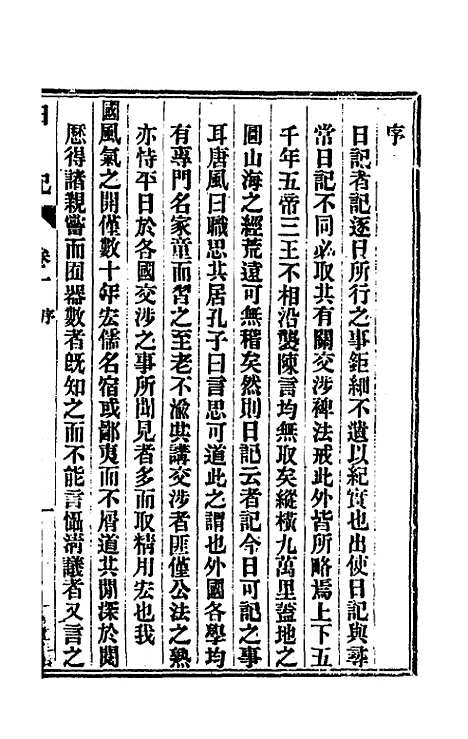 序
日記者記逐日所行之事鉅細不遺以紀實也出使日記與尋
常日記不同必取其有關交涉裨法戒此外皆所略焉上下五
千年五帝三王不相沿襲陳言均無取矣縱橫九萬里蓋地之
圖山海之經荒遠可無稽矣然則日記云者記今日可記之事
耳唐風曰職思其居孔子曰言思可道此之謂也外國各學均
有專門名家童而習之至老不渝其講交涉者匪僅公法之熟
亦恃平日於各國交涉之事所聞見者多而取精用宏也我
國風氣之開僅數十年宏儒名宿或鄙夷而不屑道其閒深於閱
歷得諸親嘗而囿器數者既知之而不能言懾清議者又言之
日記 卷一 序 一